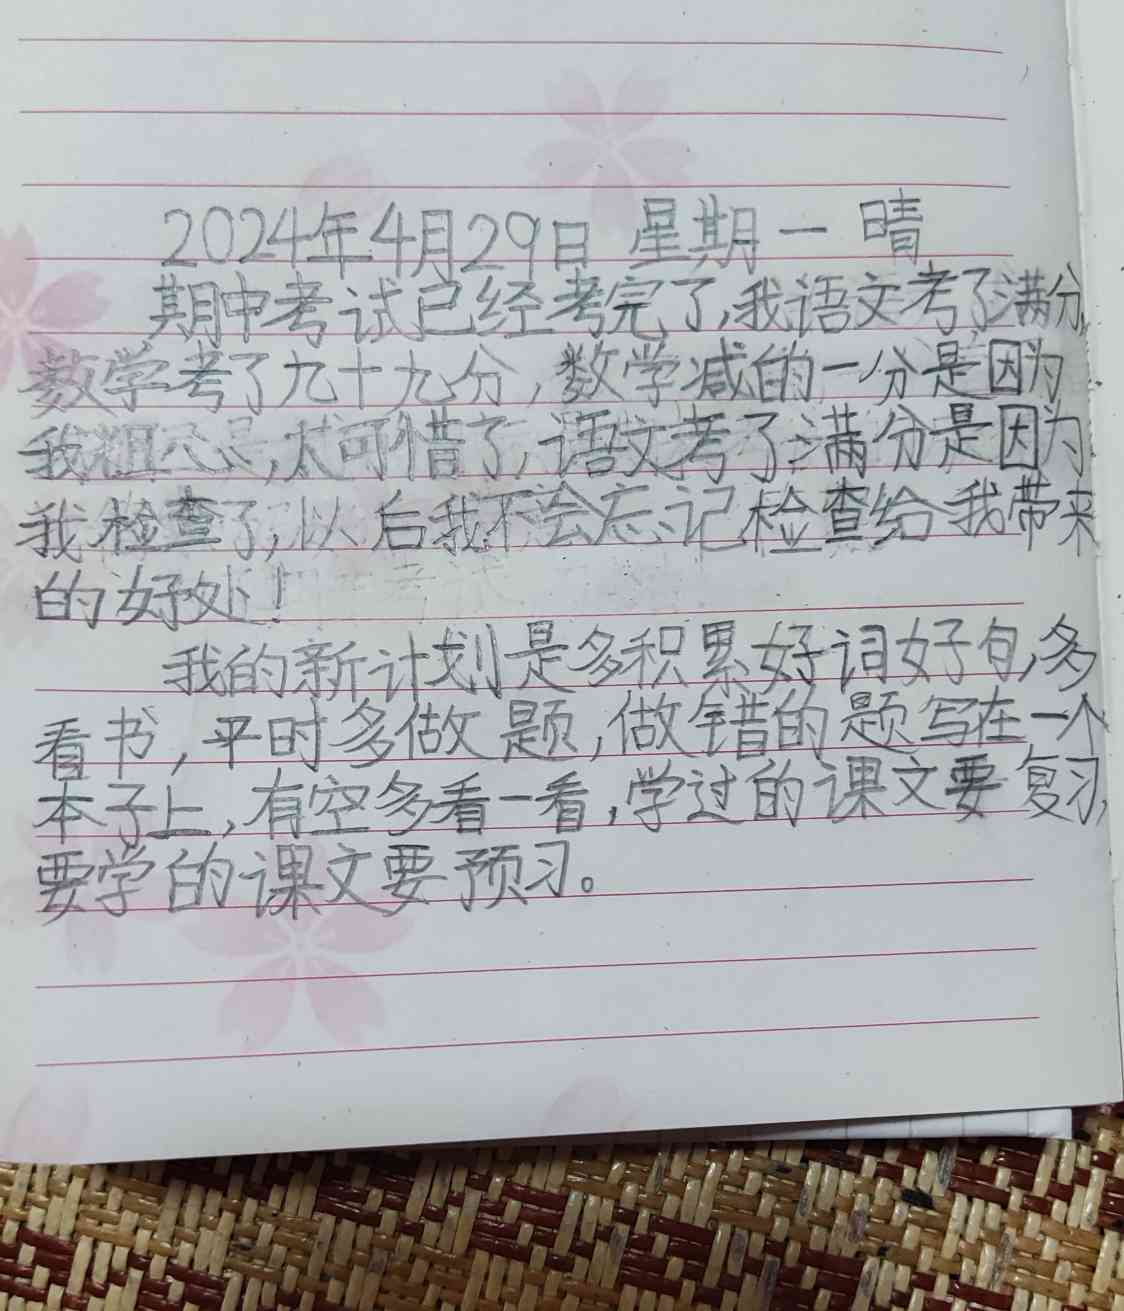 2024年4月29日 星期一 晴
期中考试已经考完了,我语文考了满分,
数学考了九十九分,数学减的一分是因为
我粗心,太可惜了,语文考了满分是因为
我检查了,以后我不会忘记检查给我带来
的好处!
我的新计划是多积累好词好句,多
看书,平时多做题,做错的题写在一个
本子上,有空多看一看,学过的课文要复习,
要学的课文要预习。